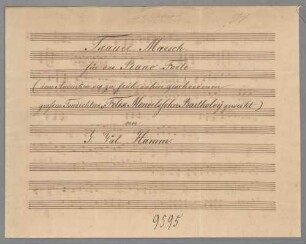 Trauer Marsch
für das Piano Forte
(dem Andenken des zu früh dahin geschiedenen
grossen Tondichters Felix Mendelsohn Bartholdy geweiht)
von
J. Val. Hamm
9595